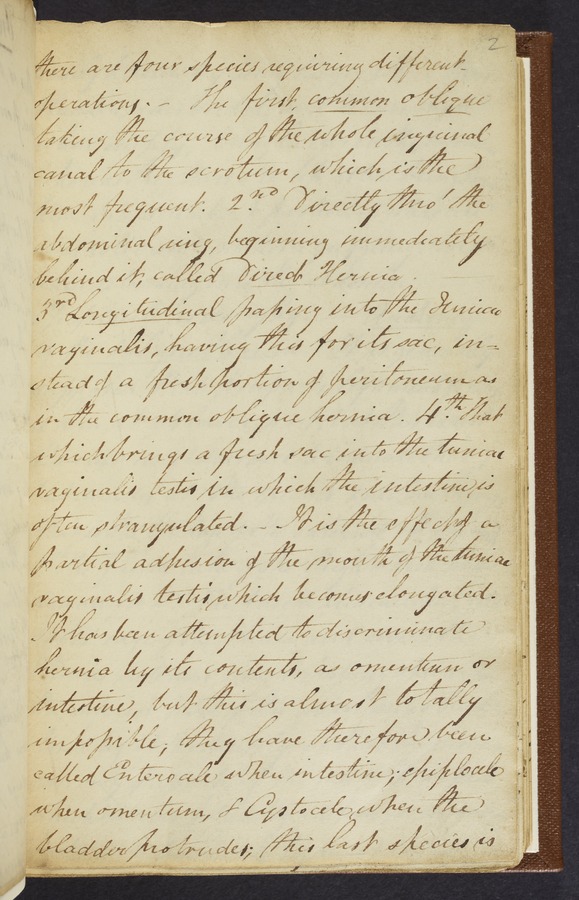 2
there are four species requiring different
operations. - The first, common oblique
taking the course of the whole inguinal
canal to the scrotum, which is the
most frequent. 2.nd Directly thro' the
abdominal ring, beginning immediately
behind it, called Direct Hernia.
3rd Longitudinal passing into the Tunica
vaginalis, having this for its sac, in=
stead of a fresh portion of peritoneum as
in the common oblique hernia. 4.th That
which brings a fresh sac into the tunica
vaginalis testis in which the intestine is
often strangulated. - It is the effect of a
partial adhesion of the mouth of the tunica
vaginalis testis which becomes elongated.
It has been attempted to discriminate
hernia by its contents, as omentum or
intestine, but this is almost totally
impossible, they have therefore been
called Enterocele when intestine; epiplocele
when omentum, & Cystocele, when the
bladder protrudes; this last species is